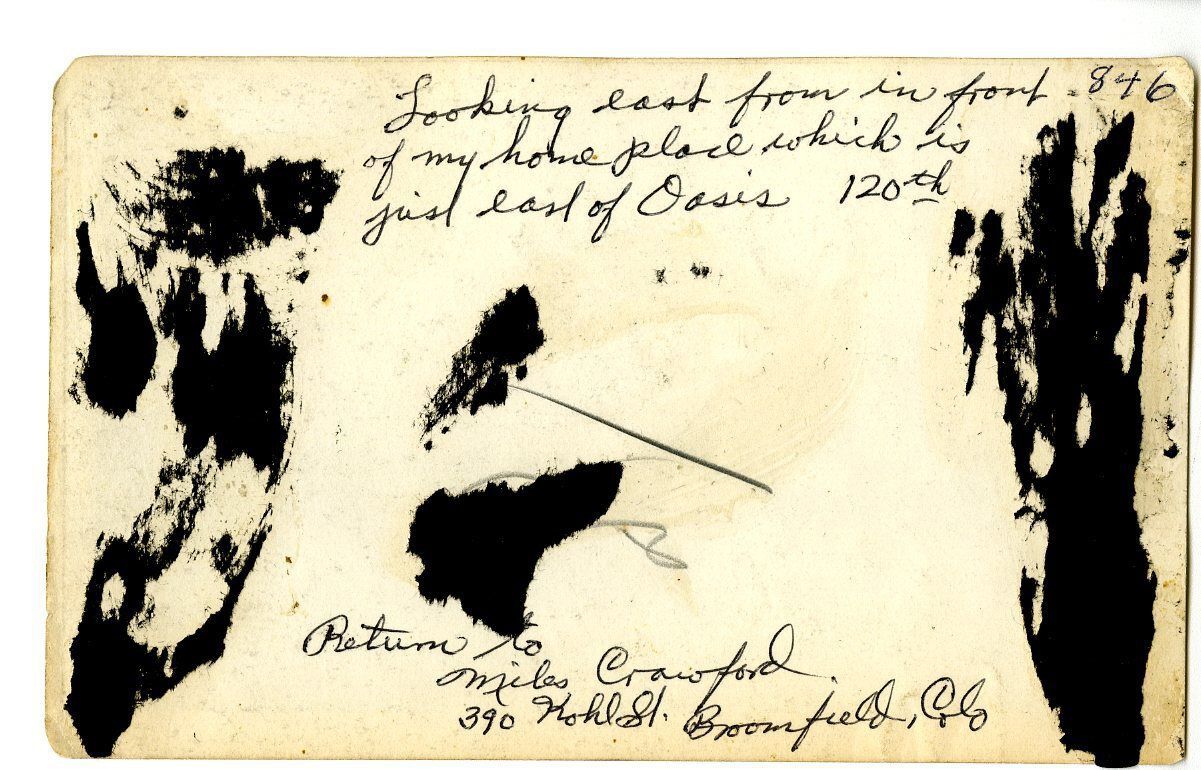 Looking east from in front 846
of my home place which is
just east of Oasis 120th
Return to
Miles Crawford
390 Kohl St. Broomfield, Colo